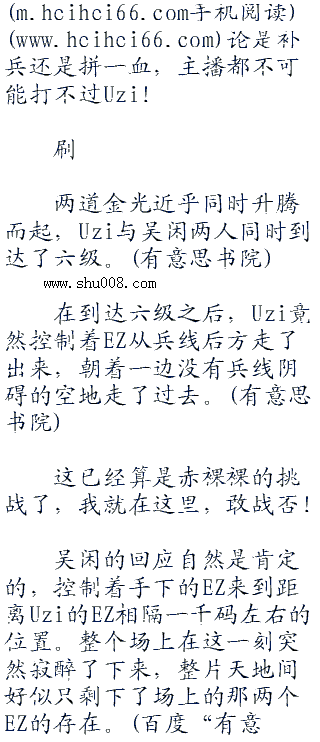 (m.hcihci66.com手机阅读)
(www.hcihci66.com)论是补
兵还是拼一血，主播都不可
能打不过Uzi!
刷
两道金光近乎同时升腾
而起，Uzi与吴闲两人同时到
达了六级。(有意思书院)
www.shu008.com
在到达六级之后，Uzi竟
然控制着EZ从兵线后方走了
出来，朝着一边没有兵线阴
碍的空地走了过去。(有意思
书院)
这已经算是赤裸裸的挑
战了，我就在这里，敢战否!
吴闲的回应自然是肯定
的，控制着手下的EZ来到距
离Uzi的EZ相隔一千码左右的
位置。整个场上在这一刻突
然寂醉了下来，整片天地间
好似只剩下了场上的那两个
EZ的存在。(百度“有意